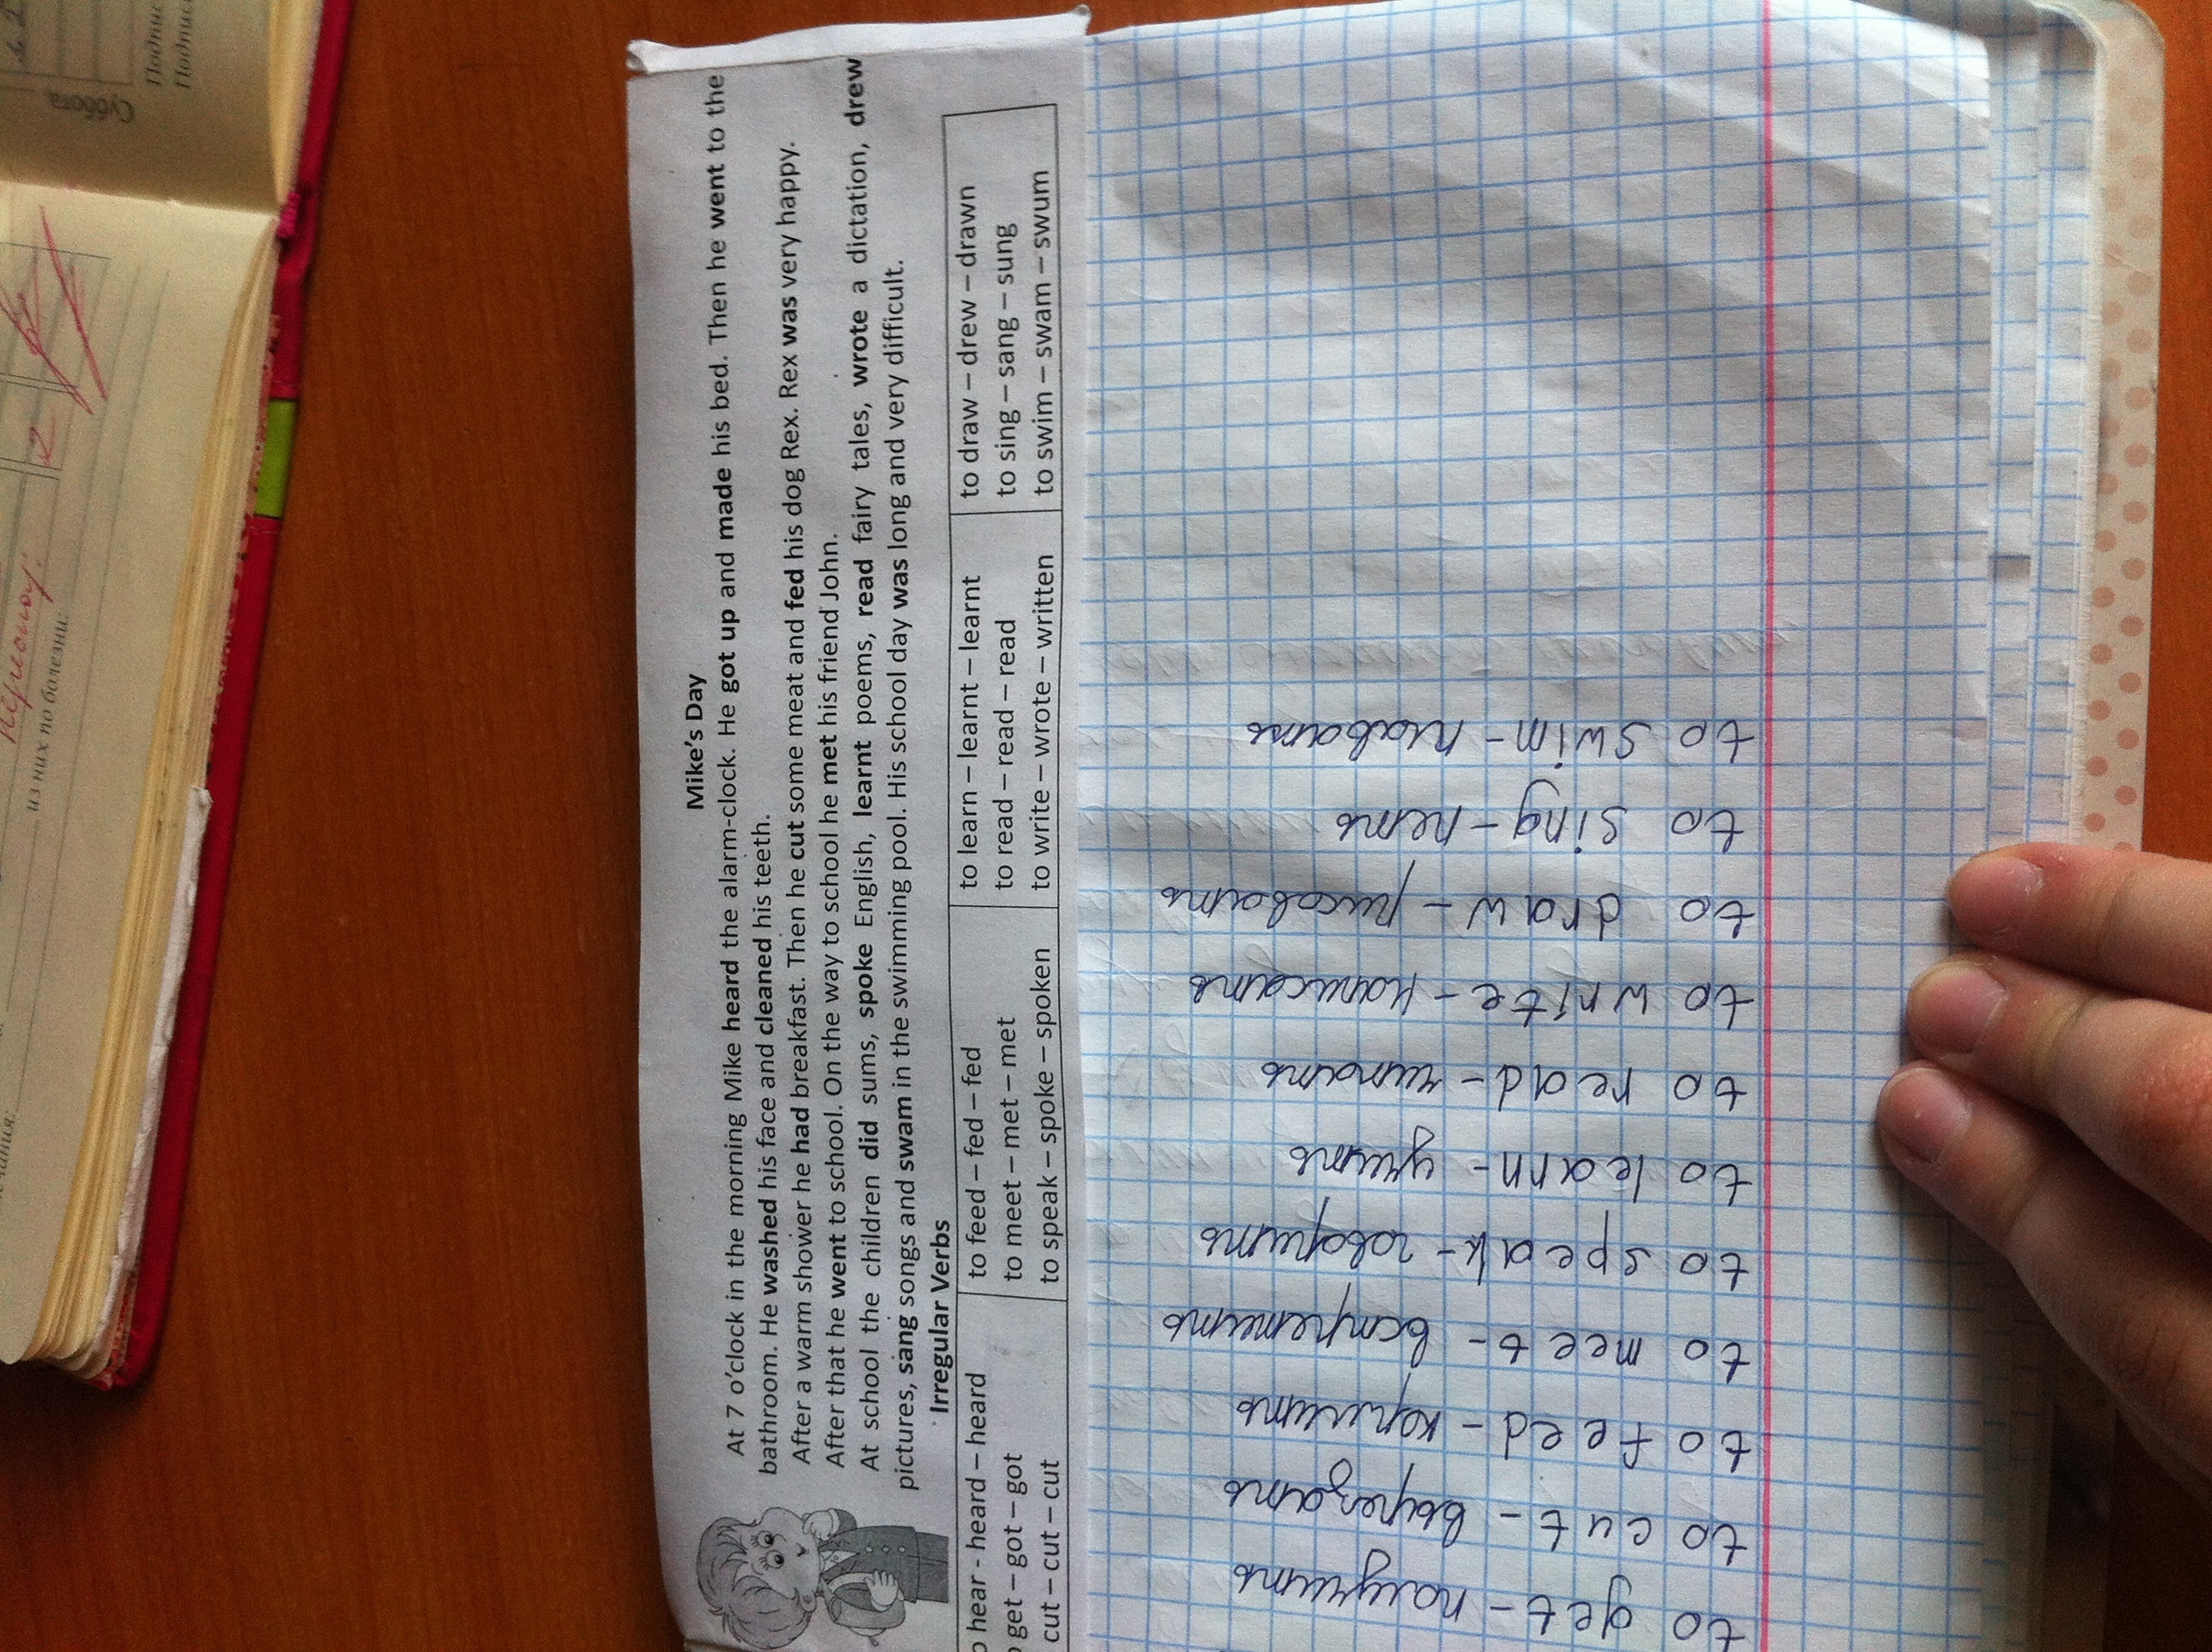 Mike's Day
At 7 o'clock in the morning Mike heard the alarm-clock. He got up and made his bed. Then he went to the
bathroom. He washed his face and cleaned his teeth.
After a warm shower he had breakfast. Then he cut some meat and fed his dog Rex. Rex was very happy.
After that he went to school. On the way to school he met his friend John.
At school the children did sums, spoke English, learnt poems, read fairy tales, wrote a dictation, drew
pictures, sang songs and swam in the swimming pool. His school day was long and very difficult.
Irregular Verbs
hear - heard – heard
get – got – got
cut – cut – cut
to feed – fed – fed
to meet – met – met
to speak – spoke – spoken
to learn – learnt – learnt
to read – read – read
to write – wrote – written
to draw – drew – drawn
to sing – sang – sung
to swim – swam – swum
to get - получить
to cut - вырезать
to feed - кормить
to meet - встретить
to speak - говорить
to learn - учить
to read - читать
to write - написать
to draw - рисовать
to sing - петь
to swim - плавать
Суббота
из них по болезни: